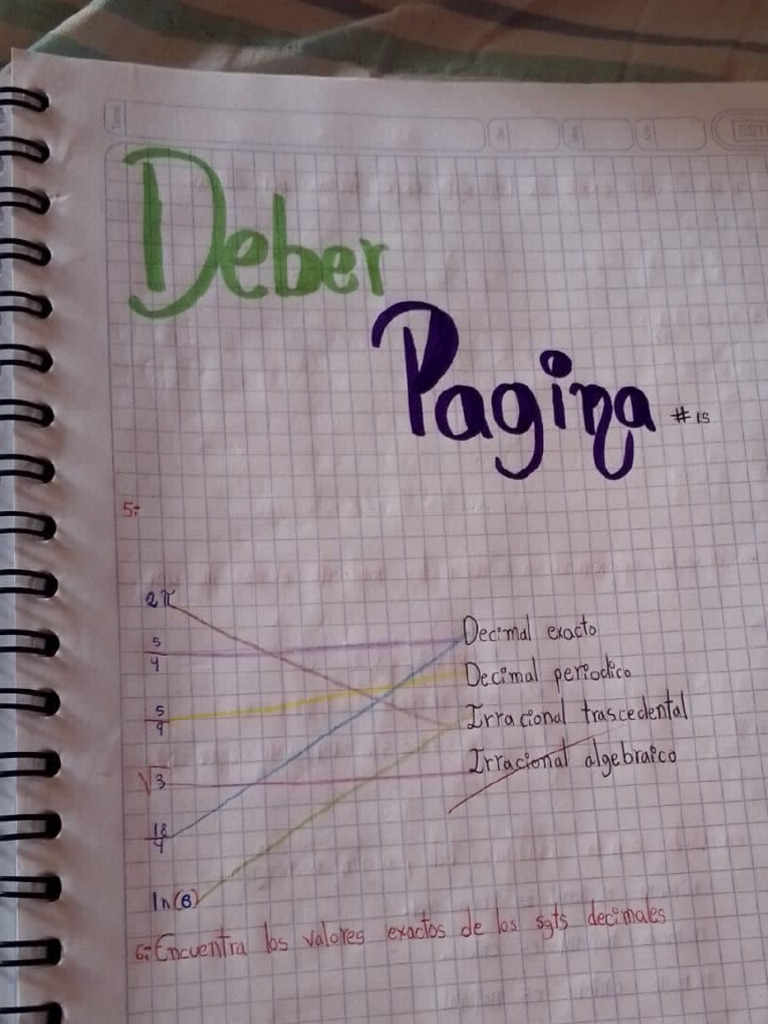 Deber
Pagina #15
5:
2π
5/4
5/9
√3
18/4
ln(8)
Decimal exacto
Decimal periodico
Irracional trascedental
Irracional algebraico
6:Encuentra los valores exactos de los sgts decimales